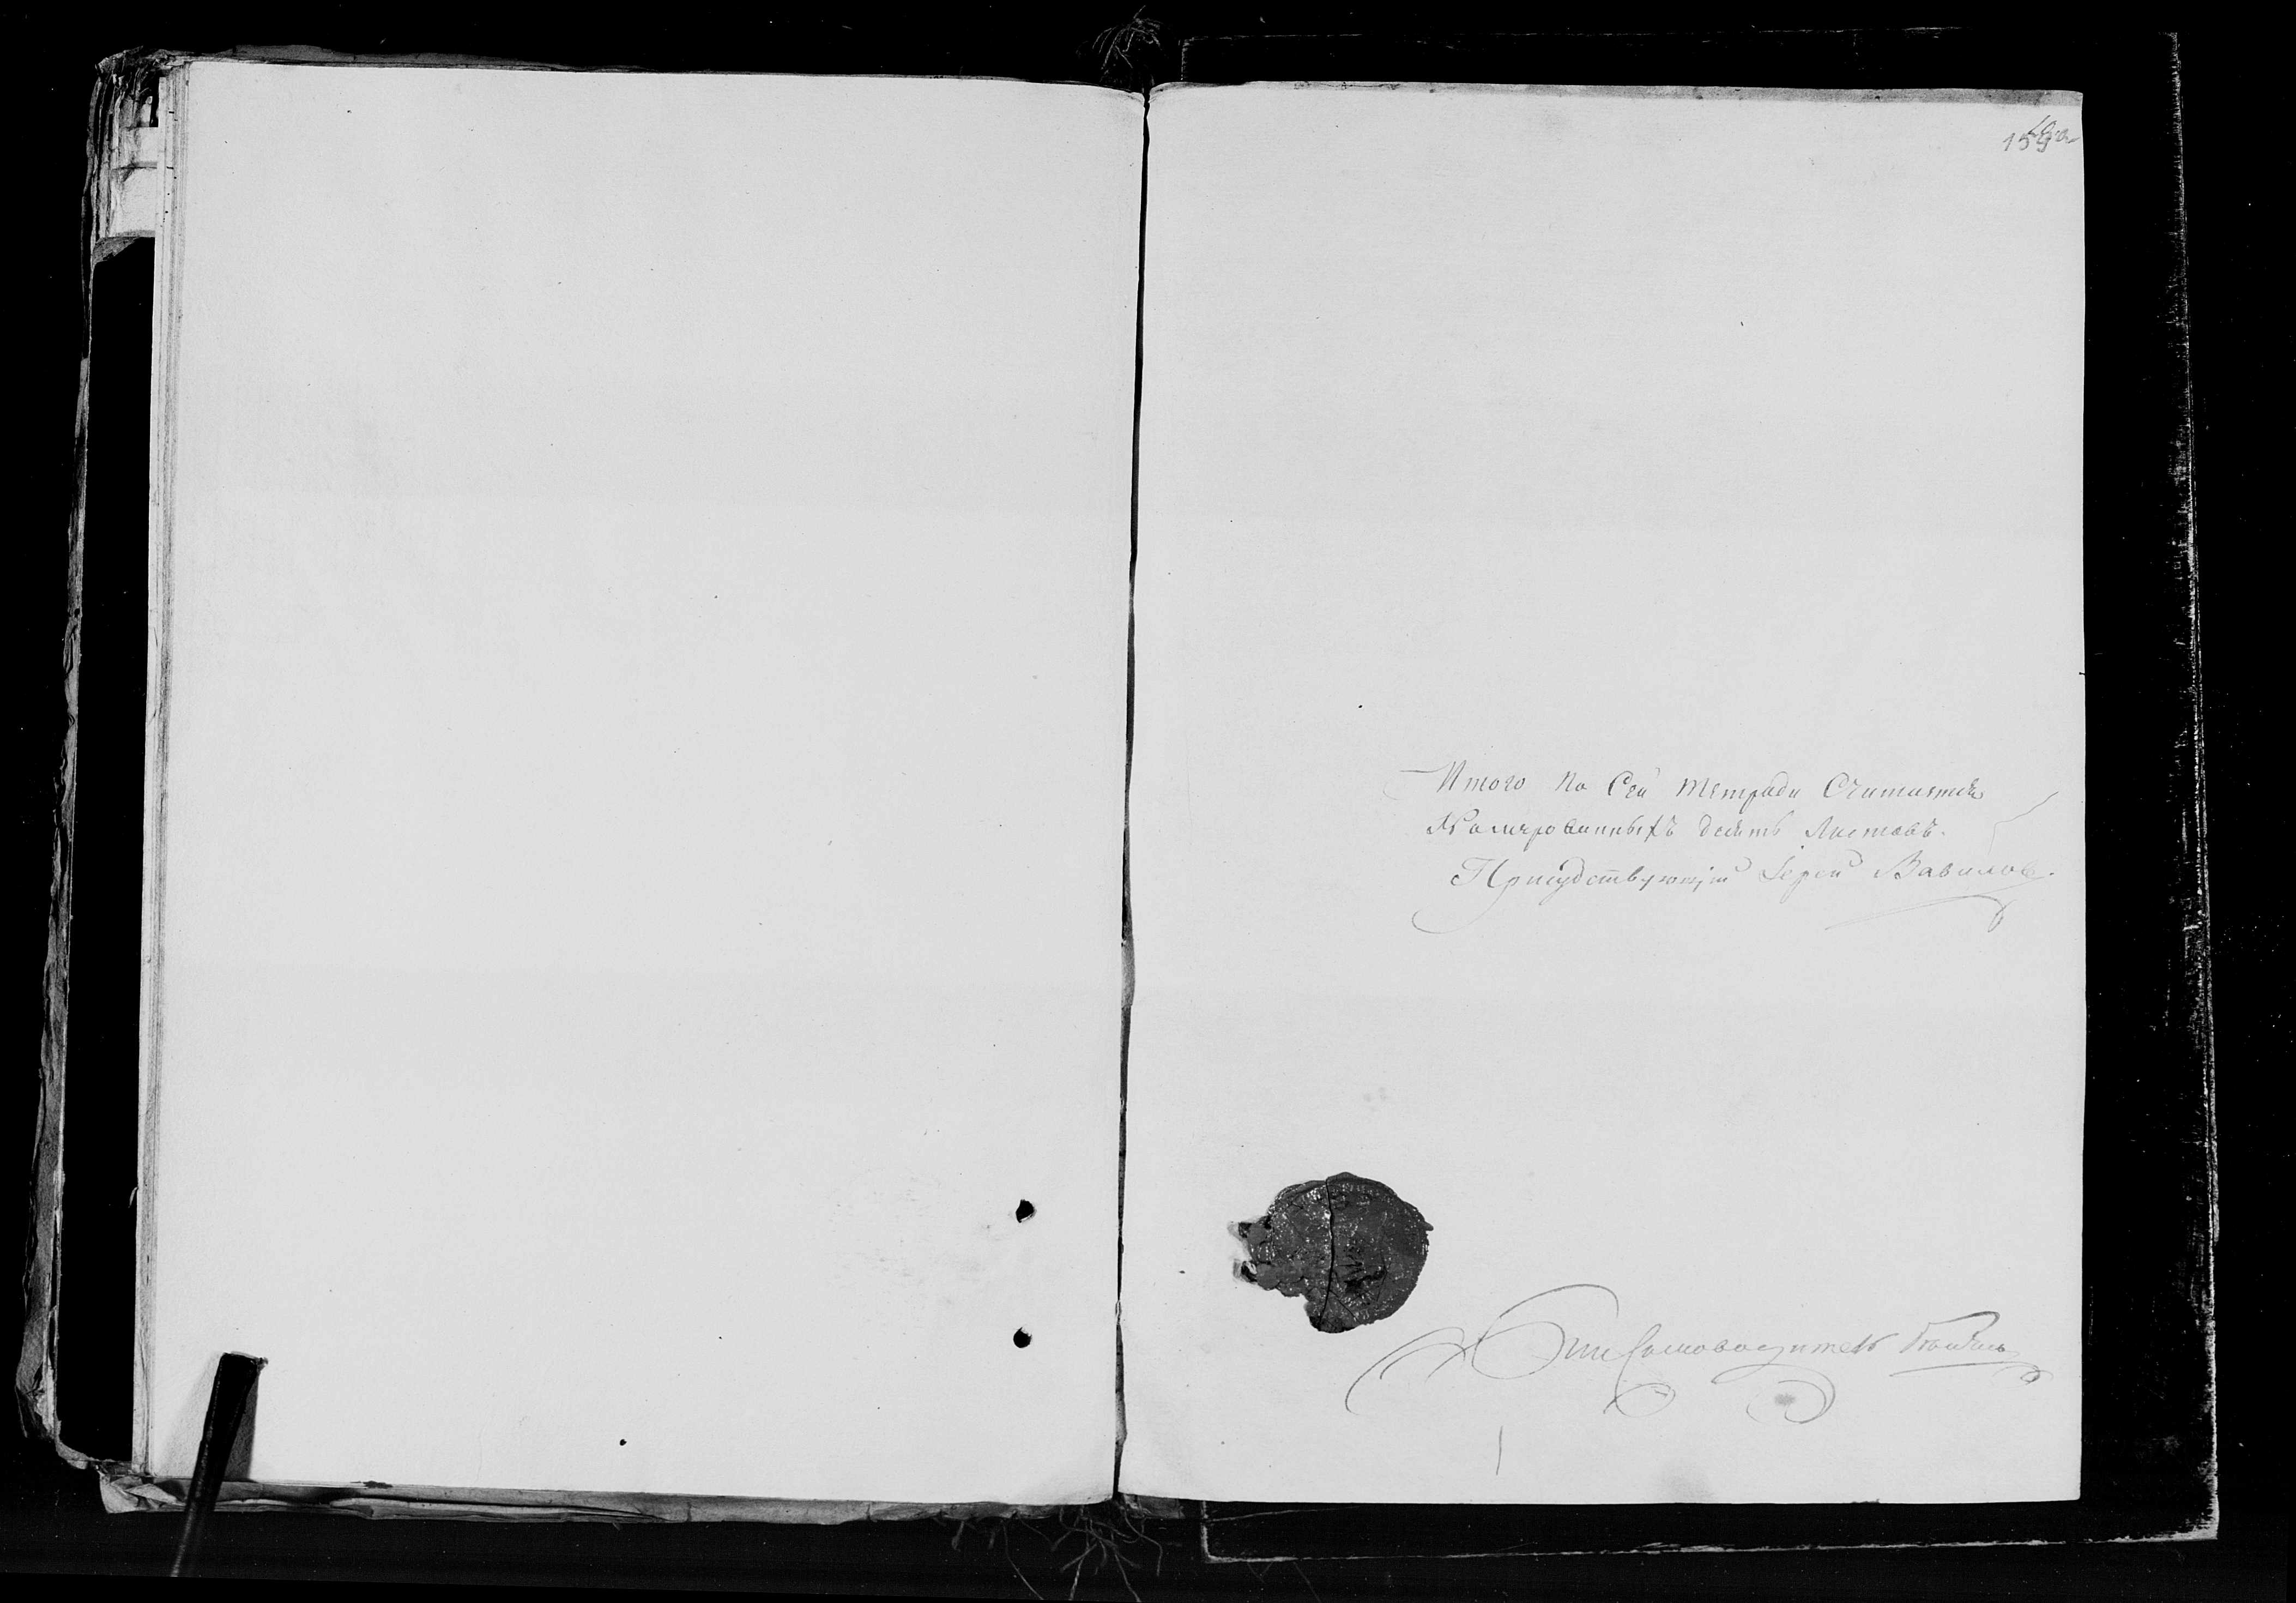 159
Итого по Сей тетради Считается
Номерованныхъ десять Листовъ.
Присудствующiй Iерей Вавилов
Письмоводитель